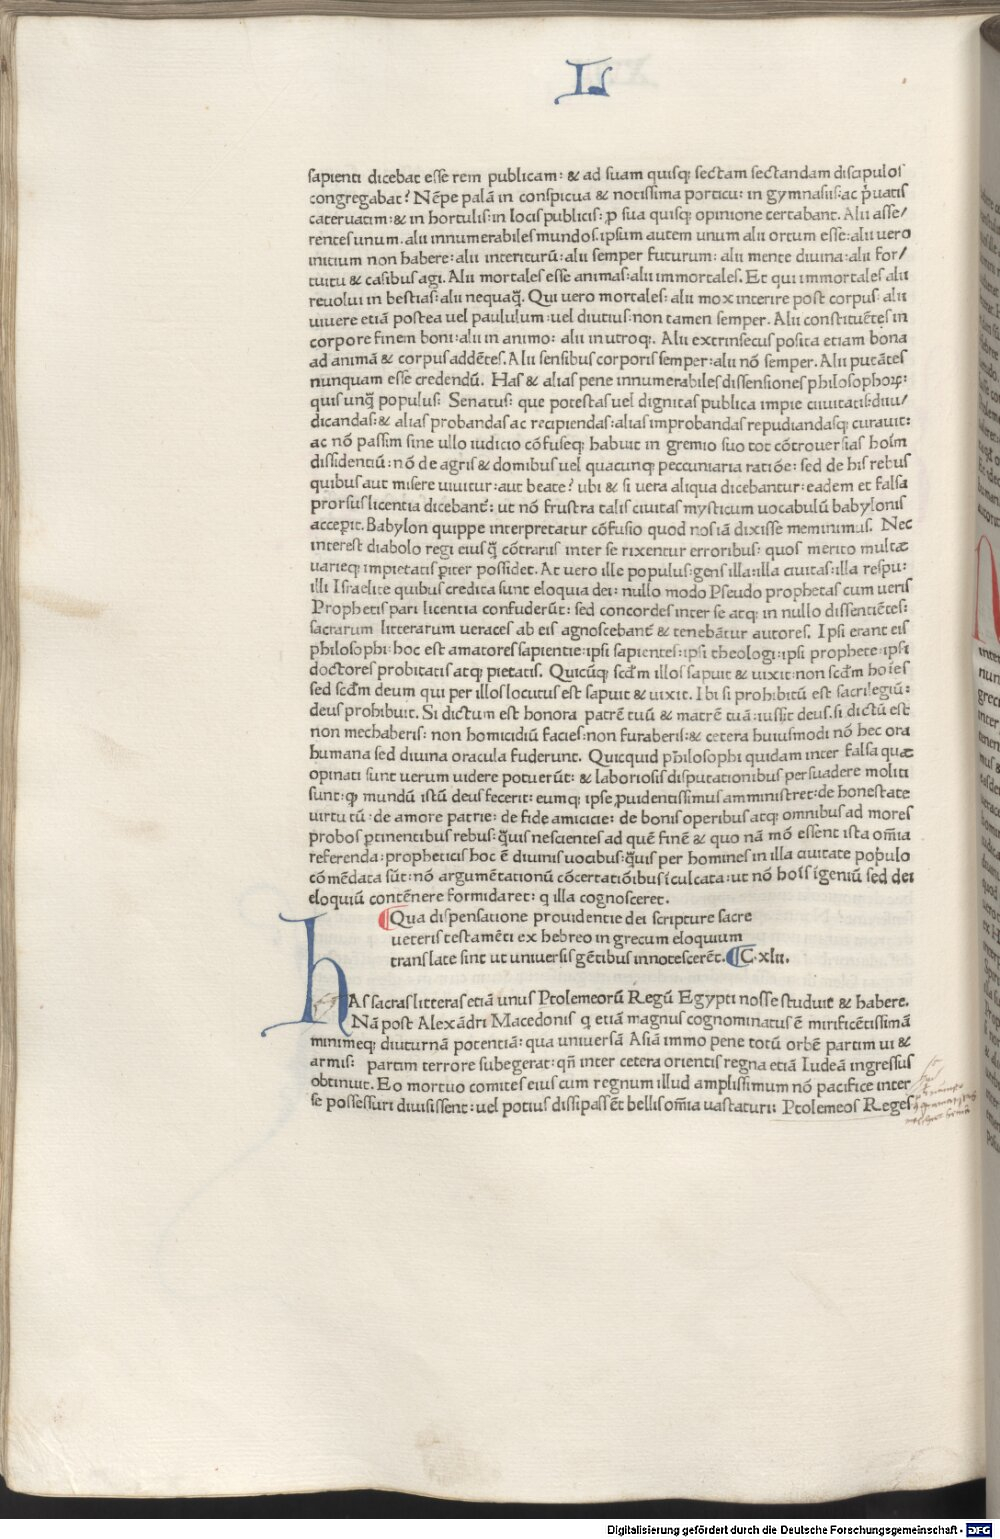 L
sapienti dicebat esse rem publicam: & ad suam quisq; sectam sectandam discipulos
congregabat? Nēpe palā in conspicua & notissima porticu: in gymnasiis: ac p̄uatis
cateruatim: & in hortulis: in locis publicis: ꝓ sua quisq; opinione certabant. Alii asse/
rentes unum. alii innumerabiles mundos. ipsum autem unum alii ortum esse: alii uero
initium non habere: alii interiturū: alii semper futurum: alii mente diuina: alii for/
tuitu & casibus agi. Alii mortales esse animas: alii immortales. Et qui immortales alii
reuolui in bestias: alii nequaq̄. Qui uero mortales: alii mox interire post corpus: alii
uiuere etiā postea uel paululum: uel diutius: non tamen semper. Alii constituētes in
corpore finem boni: alii in animo: alii in utroq;. Alii extrinsecus posita etiam bona
ad animā & corpus addētes. Alii sensibus corporis semper: alii nō semper. Alii putātes
nunquam esse credendū. Has & alias pene innumerabiles dissensiones philosophoꝝ:
quis unq̄ populus: Senatus: que potestas uel dignitas publica impie ciuitatis: diiu/
dicandas: & alias probandas ac recipiendas: alias improbandas repudiandasq; curauit:
ac nō passim sine ullo iudicio cōfuseq; habuit in gremio suo tot cōtrouersias hoīm
dissidentiū: nō de agris & domibus uel quacunq; peccuniaria ratiōe: sed de his rebus
quibus aut misere uiuitur: aut beate? ubi & si uera aliqua dicebantur: eadem et falsa
prorsus licentia dicebant᷑: ut nō frustra talis ciuitas mysticum uocabulū babylonis
acceperit. Babylon quippe interpretatur cōfusio quod nos iā dixisse meminimus. Nec
interest diabolo regi eius q̄ cōtrariis inter se rixentur erroribus: quos merito multæ
uarieq; impietatis pariter possidet. At uero ille populus: gens illa: illa ciuitas: illa respu:
illi Israelite quibus credita sunt eloquia dei: nullo modo Pseudo prophetas cum ueris
Prophetis pari licentia confuderūt: sed concordes inter se atq; in nullo dissentiētes:
sacrarum litterarum ueraces ab eis agnoscebant᷑ & tenebātur autores. Ipsi erant eis
philosophi: hoc est amatores sapientie: ipsi sapientes: ipsi theologi: ipsi prophete: ipsi
doctores probitatis atq; pietatis. Quicūq; scđm illos sapuit & uixit: non scđm hoīes
sed scđm deum qui per illos locutus est sapuit & uixit. Ibi si prohibitū est sacrilegiū:
deus prohibuit. Si dictum est honora patrē tuū & matrē tuā: iussit deus. si dictū est
non mechaberis: non homicidiū facies: non furaberis: & cetera huiusmodi nō hec ora
humana sed diuina oracula fuderunt. Quicquid philosophi quidam inter falsa quæ
opinati sunt uerum uidere potuerūt: & laboriosis disputationibus persuadere moliti
sunt: ꝙ mundū istū deus fecerit: eumq; ipse ꝓuidentissimus amministret: de honestate
uirtutū: de amore patrie: de fide amicicie: de bonis operibus atq; omnibus ad mores
probos ꝑtinentibus rebus: q̄uis nescientes ad quē finē & quo nā mō essent ista om̄ia
referenda: propheticis hoc ē diuinis uocibus: q̄uis per homines in illa ciuitate populo
cōmēdata sūt: nō argumētationū cōcertatiōibus īculcata: ut nō hoīs īgeniū sed dei
eloquiū contēnere formidaret: q illa cognosceret.
Qua dispensatione prouidentie dei scripture sacre
ueteris testamēti ex hebreo in grecum eloquium
translate sint ut uniuersis gētibus innotescerēt. C. xlii.
hAs sacras litteras etiā unus Ptolemeorū Regū Egypti nosse studuit & habere.
Nā post Alexādri Macedonis q etiā magnus cognominatus ē mirificētissimā
minimeq; diuturnā potentiā: qua uniuersā Asiā immo pene totū orbē partim ui &
armis: partim terrore subegerat: qn̄ inter cetera orientis regna etiā Iudeā ingressus
obtinuit. Eo mortuo comites eius cum regnum illud amplissimum nō pacifice inter
se possessuri diuisissent: uel potius dissipassēt bellis om̄ia uastaturi: Ptolemeos Reges
Digitalisierung gefördert durch die Deutsche Forschungsgemeinschaft - DFG